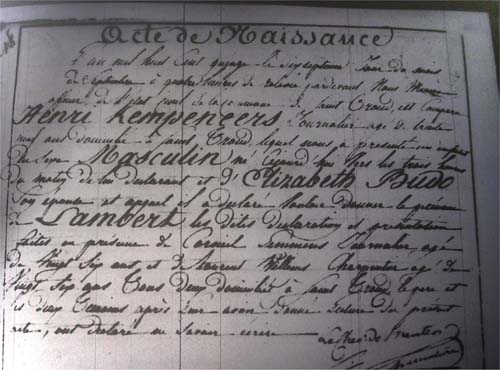 Acte de Naissance
L'an mil huit cent quinze le dix septieme Jour du mois
de Septembre à quatre heures de relevée pardevant Nous Maire
officier de l'Etat civil de la commune de Saint Trond, est comparu
Henri Kempeneers Journalier agé de trente
neuf ans domicilié à Saint Trond, lequel nous a présenté un enfant
du Sexe Masculin né lejourd'hui vers les trois heures
du matin de lui déclarant et d' Elizabeth Budo
Son épouse et auquel il a déclaré vouloir donner le prénom
de Lambert les dites déclaration et présentation
faites en présence de Corneil Journalier, agé
de Vingt Six ans et de Laurent Willems Charpentier agé de
Vingt Six ans tous deux domiciliés à Saint Trond le pere et
les deux temoins après leur avoir donné lecture du présent
acte, ont déclaré ne savoir écrire